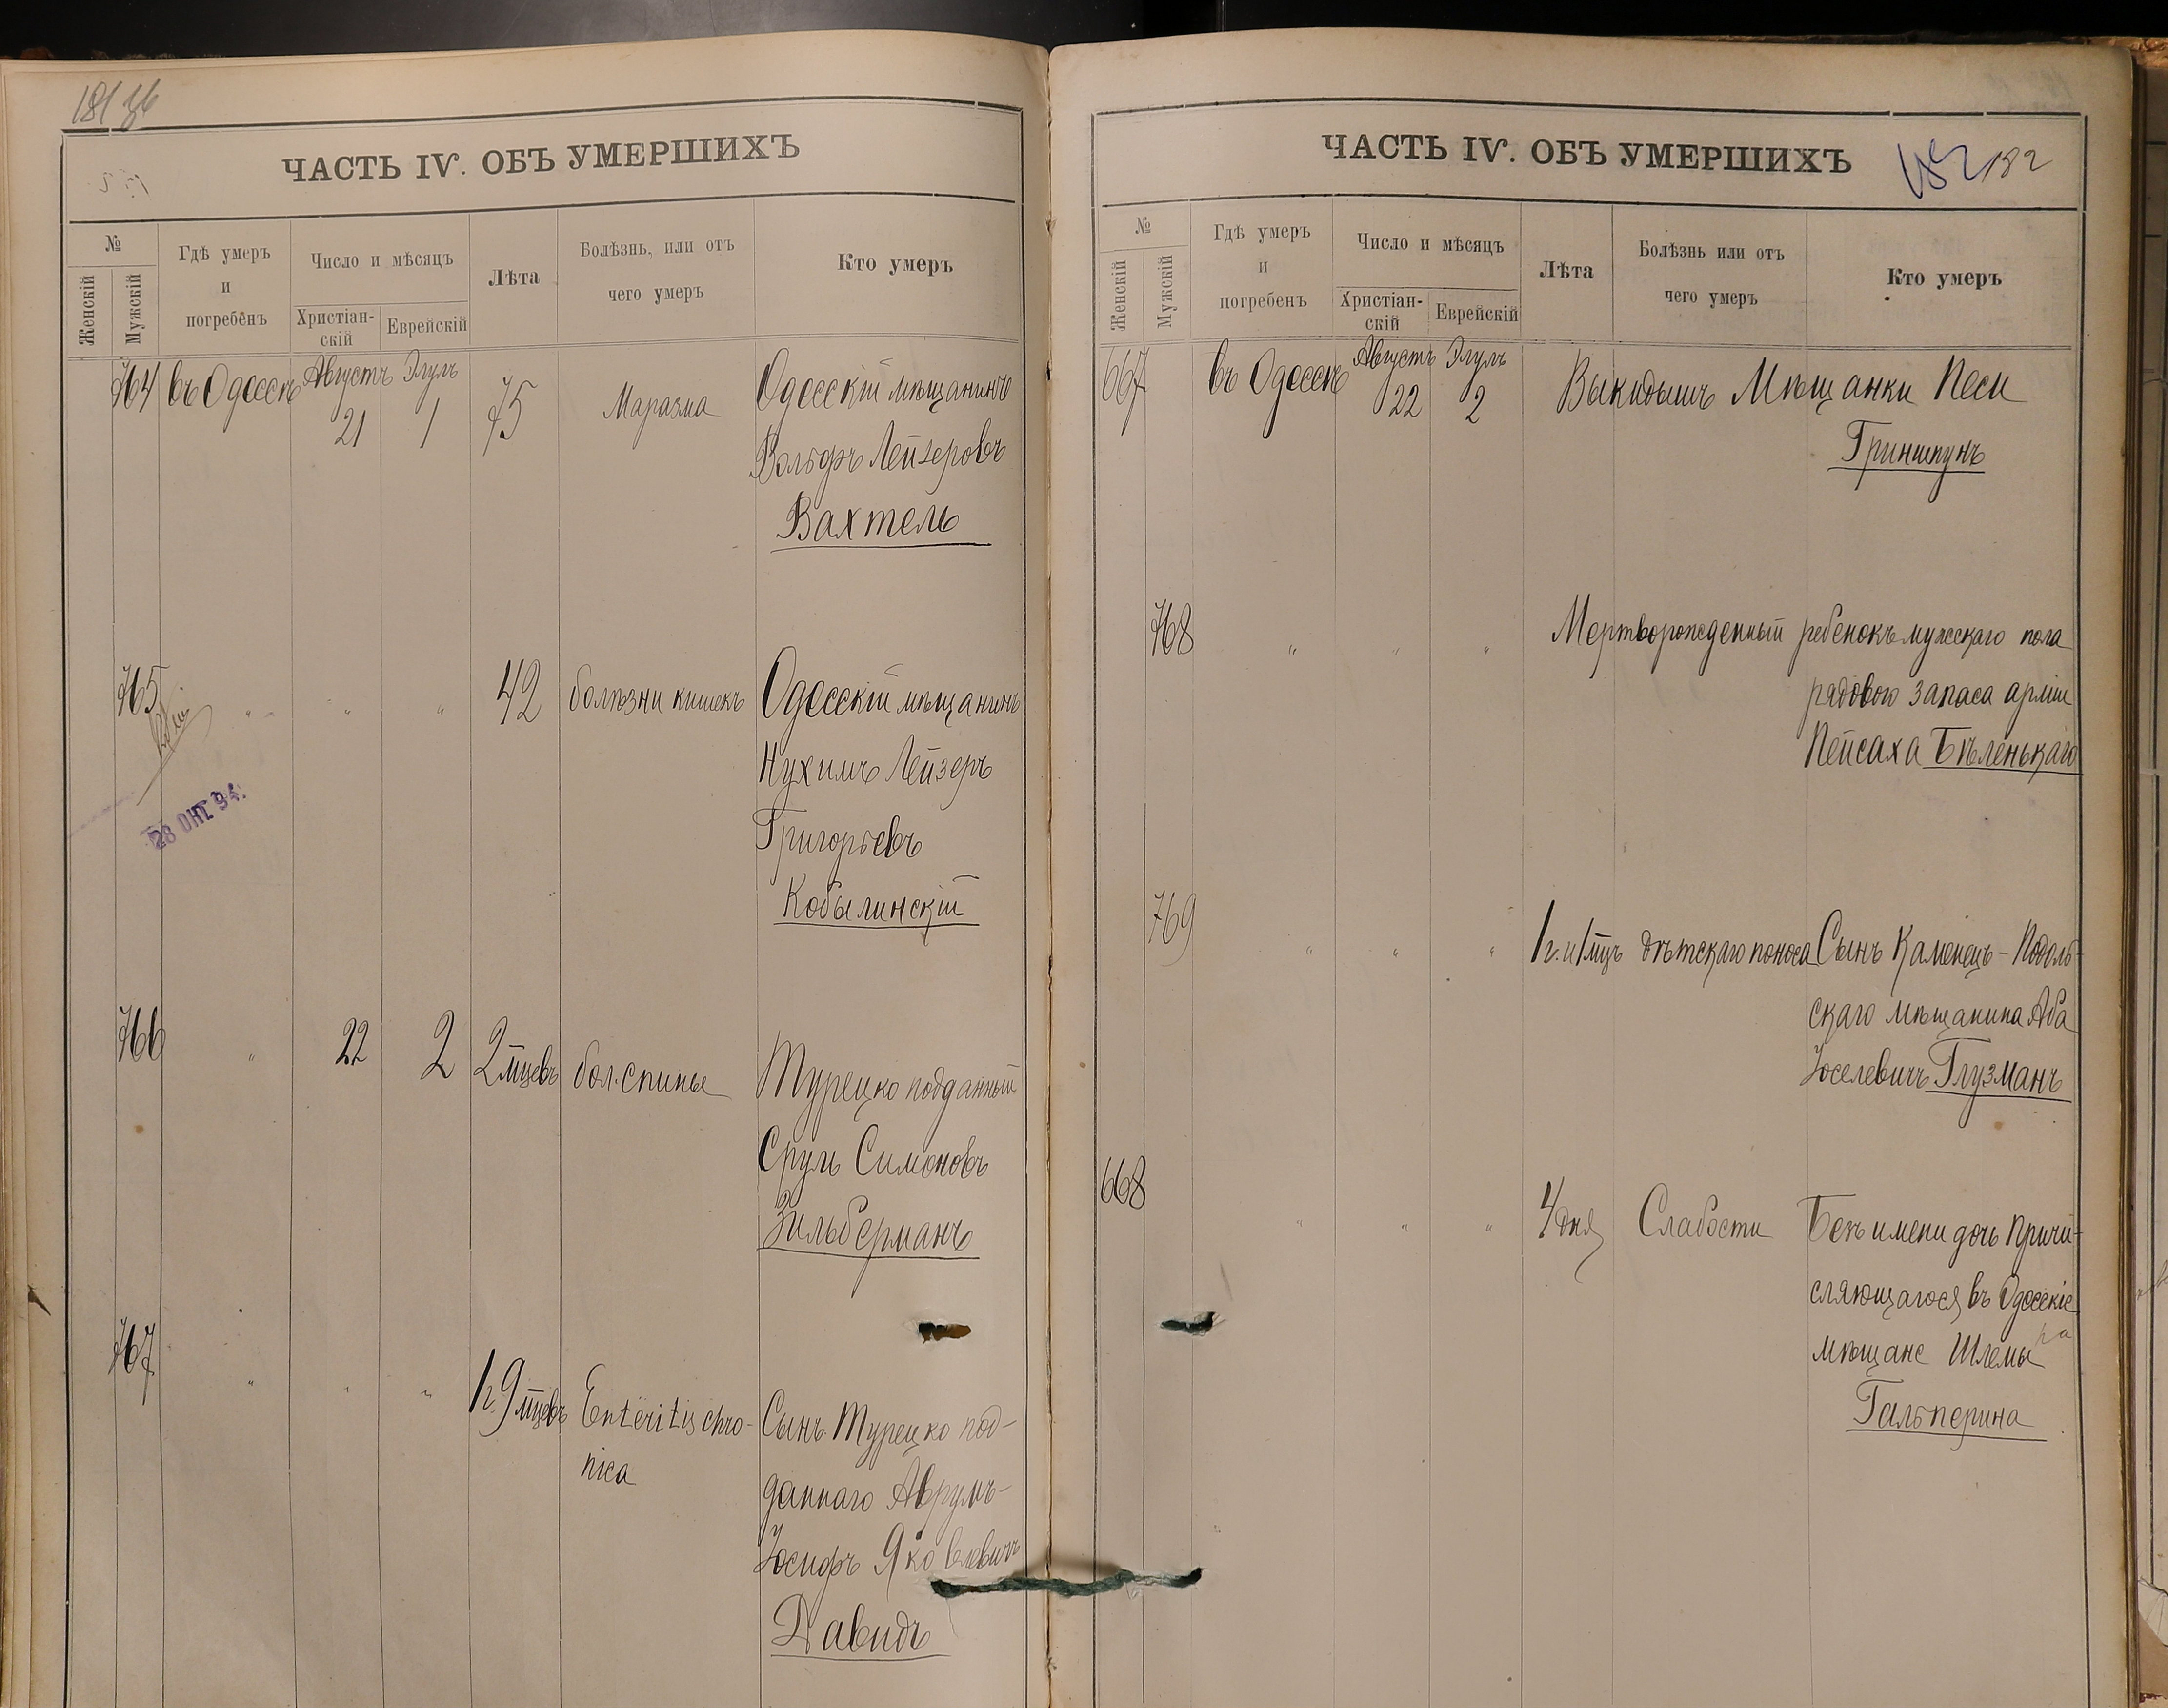 181
ЧАСТЬ IV. ОБЪ УМЕРШИХЪ
№
Женскій
Мужскій
Гдѣ умеръ
и
погребенъ
Число и мѣсяцъ
Христіан-
скій
Еврейскій
Лѣта
Болѣзнь, или отъ
чего умеръ
Кто умеръ
764 въ Одессѣ Августъ 21 Элулъ 1 75 Маразма Одесскій мѣщанинъ
Вольфъ Лейзеровъ
Вахтель
765 " " " 42 болѣзни кишекъ Одесскій мѣщанинъ
Нухимъ Лейзеръ
Григорьевъ
Кобылинскій
28 ОКТ 94.
766 " 22 2 2 мцевъ бол. спины Турецко подданный
Сруль Симоновъ
Зильберманъ
767 " " " 1 г. 9 мцевъ Enteritis chro- Сынъ Турецко под-
nica
даннаго Аврумъ-
Іосифъ Яковлевичъ
Давидъ
ЧАСТЬ IV. ОБЪ УМЕРШИХЪ
182 182
№
Женскій
Мужскій
Гдѣ умеръ
и
погребенъ
Число и мѣсяцъ
Христіан-
скій
Еврейскій
Лѣта
Болѣзнь или отъ
чего умеръ
Кто умеръ
667 въ Одессѣ Августъ 22 Элулъ 2 Выкидышъ Мѣщанки Песи
Гриншпунъ
768 " " " Мертворожденный ребенокъ мужскаго пола
рядового запаса арміи
Пейсаха Бѣленькаго
769 " " " 1 г. и 1 мцъ дѣтскаго поноса Сынъ Каменецъ-Подоль-
скаго мѣщанина Аба
Іоселевичъ Глузманъ
668 " " " 4 дня Слабости Безъ имени дочь причи-
сляющагося въ Одесскіе
мѣщане Шлемы
Гальперина